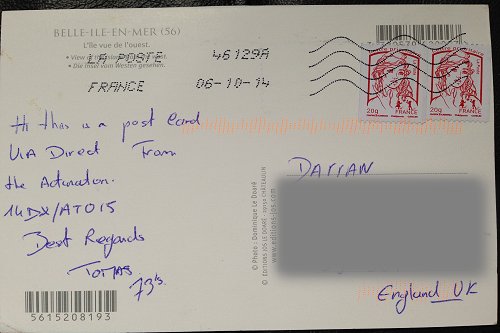 BELLE-ILE-EN-MER (56)
L'île vue de l'ouest.
• View of the island from the west.
• Die Insel vom Westen gesehen.
LA POSTE 46129A
FRANCE 06-10-14
20g FRANCE
20g FRANCE
Hi this is a post card
VIA Direct From
the Activation.
14DX/AT015
Best Regards
TOMAS
73's
Darran
England UK
© Photo : Dominique Le Doaré
© EDITIONS JOS LE DOARÉ - 29150 CHÂTEAULIN
www.editions-jos.com
5615208193